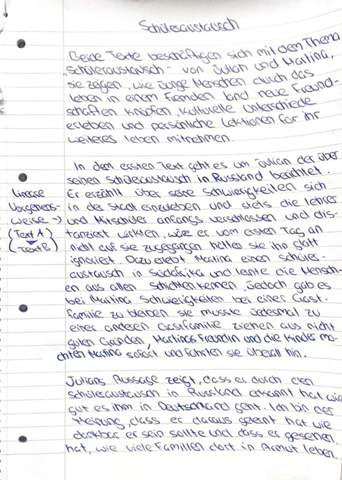 Schüleraustausch
Beide Texte beschäftigen sich mit dem Thema
Schüleraustausch - von Julian und Martina,
sie zeigen, wie junge Menschen durch das
leben in einem Fremden land neue Freund-
schaften knüpfen, kulturelle Unterschiede
erleben und persönliche Lektionen für ihr
weiteres leben mitnehmen.
In dem ersten Text geht es um Julian der über
seinen Schüleraustausch in Russland berichtet.
Er erzählt über seine Schwierigkeiten sich
in der Stadt einzuleben und stets die lehrer
und Mitschüler anfangs verschlossen und dis-
tanziert wirkten, wäre er vom ersten Tag an
nicht auf sie zugegangen hetten sie ihn glatt
ignoriert. Dazu erlebt Martina einen schüler-
austausch in Südafrika und lernte die Mensch-
en aus allen Schichten kennen, Jedoch gab es
bei Martina Schwierigkeiten bei einer Gast-
familie zu bleiben sie musste Jedesmal zu
einer anderen Gastfamilie ziehen aus nicht
guten Gründen, Martinas Freundin und die Kinder mo-
chten Martina sofort und führten sie überall hin.
Lineare
Vorgehens-
weise →
(Text A)
(Text B)
Julians Aussage zeigt, dass er durch den
schüleraustausch in Russland erkannt hat wie
gut es ihm in Deutschland geht. Ich bin der
Meinung, dass er daraus gelernt hat wie
dankbar er sein sollte und dass er gesehen
hat, wie viele Familien dort in Armut leben.